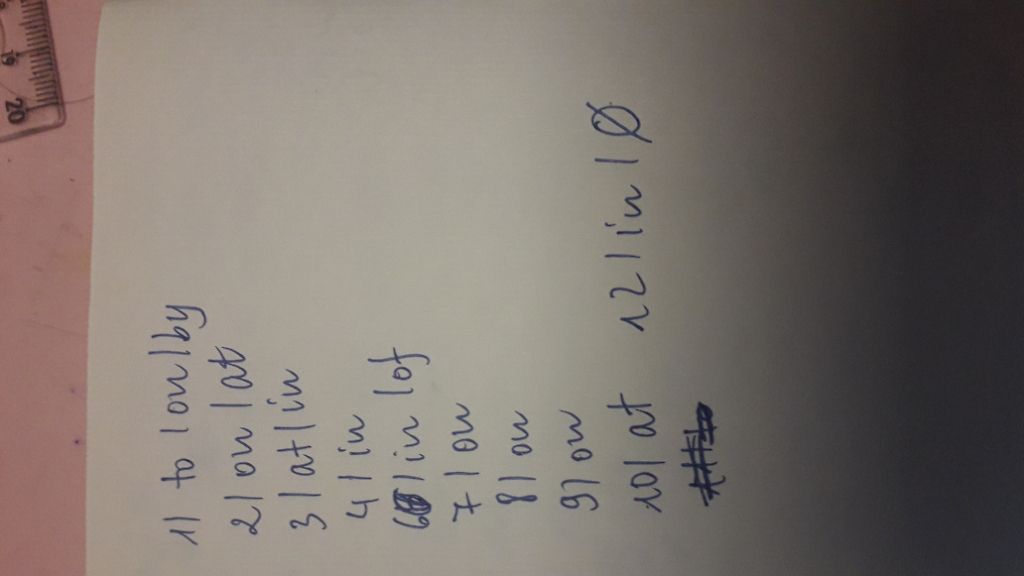 1) to / on / by
2) on / at
3) at / in
4) in
6) in / of
7) on
8) on
9) on
10) at 12) in / Ø
20
19